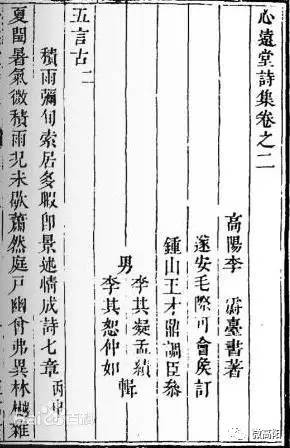 心遠堂詩集卷之二
高陽李霨臺書著
遂安毛際可會侯訂
鍾山王才鼎調臣叅
男李其凝孟績
李其恕仲如輯
五言古二
積雨彌旬索居多暇即景述情成詩七章丙申
夏閏暑氣微積雨況未歇蕭然庭戶幽曾弗異林樾雜
Bai百科
微高阳